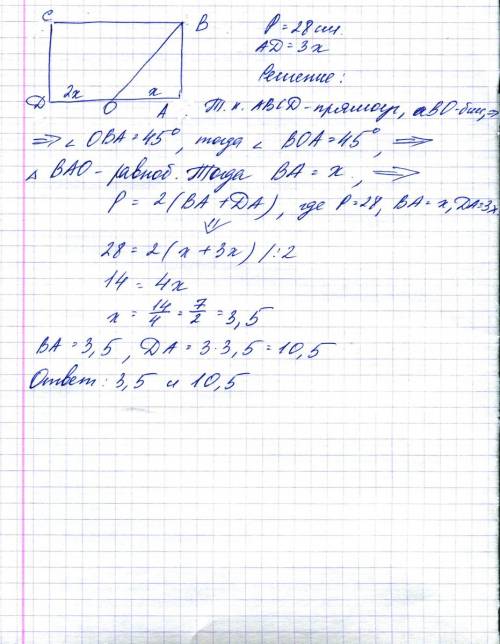 C
B
P = 28 см.
AD = 3x
Решение:
2x
x
D
O
A
Т. к. ABCD - прямоуг, а BO - бис, ⇒
⇒ ∠ OBA = 45°, тогда ∠ BOA = 45°, ⇒
△ BAO - равноб. Тогда BA = x, ⇒
P = 2(BA + DA), где P = 28, BA = x, DA = 3x
⇓
28 = 2(x + 3x) /:2
14 = 4x
x = 14/4 = 7/2 = 3,5
BA = 3,5, DA = 3·3,5 = 10,5
Ответ: 3,5 и 10,5